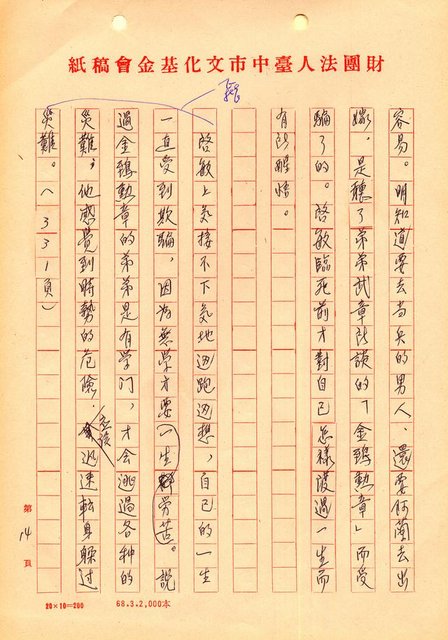 財團法人臺中市文化基金會稿紙
容易。明知道要去当兵的男人，還要阿蘭去出
嫁，是聽了弟弟武章所談的「金鵄勳章」而受
騙了的。啓敏臨死前才對自己怎樣渡過一生而
有所醒悟。
啓敏上気接不下気地迴跑迴想，自己的一生
一直受到欺騙，因為無學才要一生勞苦。說
過金鵄勳章的弟弟是有学问，才会逃過各种的
災難，他感覺到時勢的危險，應該迅速転身躱过
災難。（331頁）
第14頁
20×10=200
68.3.2,000本